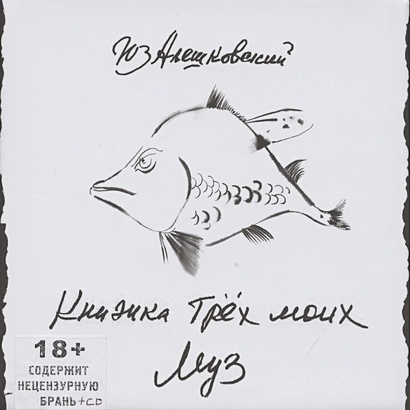 Юз Алешковский
Книжка трёх моих
Муз
18+
СОДЕРЖИТ
НЕЦЕНЗУРНУЮ
БРАНЬ +CD